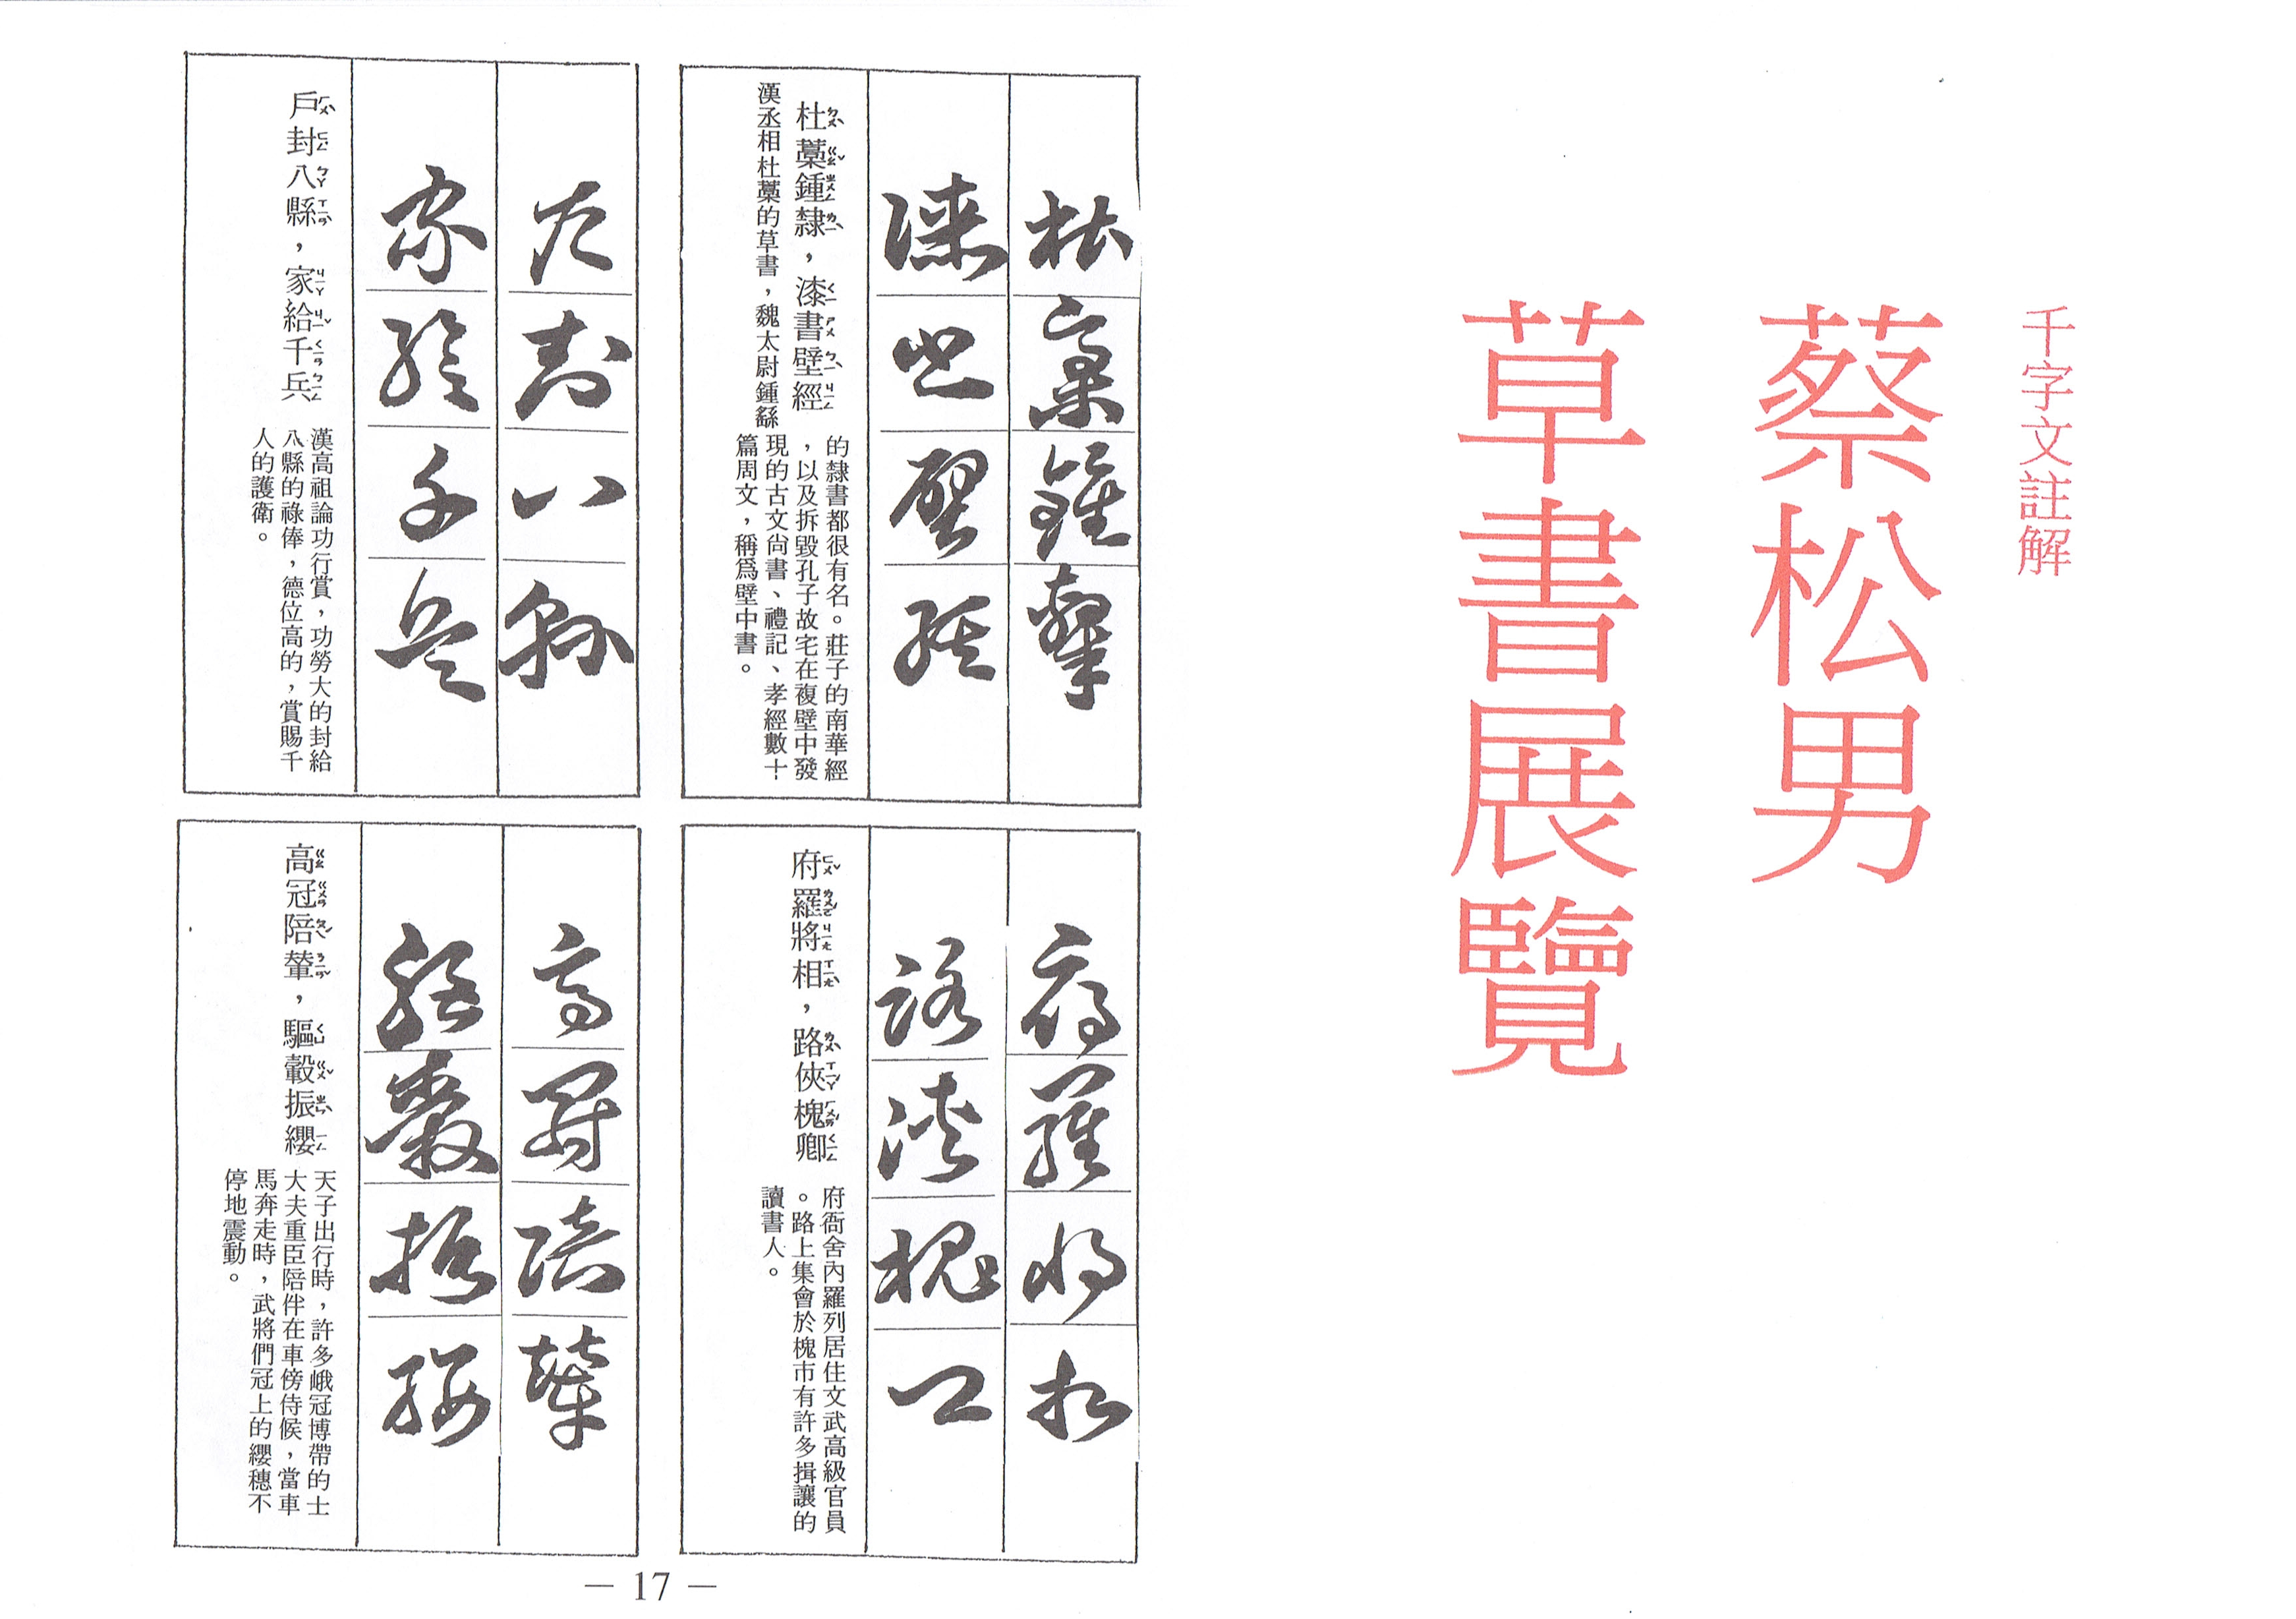 千字文註解
蔡松男
草書展覽
杜稾鍾隸
漆書壁經
杜藁鍾隸，漆書壁經
漢丞相杜藁的草書，魏太尉鍾繇
的隸書都很有名。莊子的南華經
，以及拆毀孔子故宅在複壁中發
現的古文尚書、禮記、孝經數十
篇周文，稱爲壁中書。
府羅將相
路俠槐卿
府羅將相，路俠槐卿
府衙舍內羅列居住文武高級官員
。路上集會於槐市有許多揖讓的
讀書人。
戶封八縣
家給千兵
戶封八縣，家給千兵
漢高祖論功行賞，功勞大的封給
八縣的祿俸，德位高的，賞賜千
人的護衛。
高冠陪輦
驅轂振纓
高冠陪輦，驅轂振纓
天子出行時，許多峨冠博帶的士
大夫重臣陪伴在車傍侍候，當車
馬奔走時，武將們冠上的纓穗不
停地震動。
— 17 —